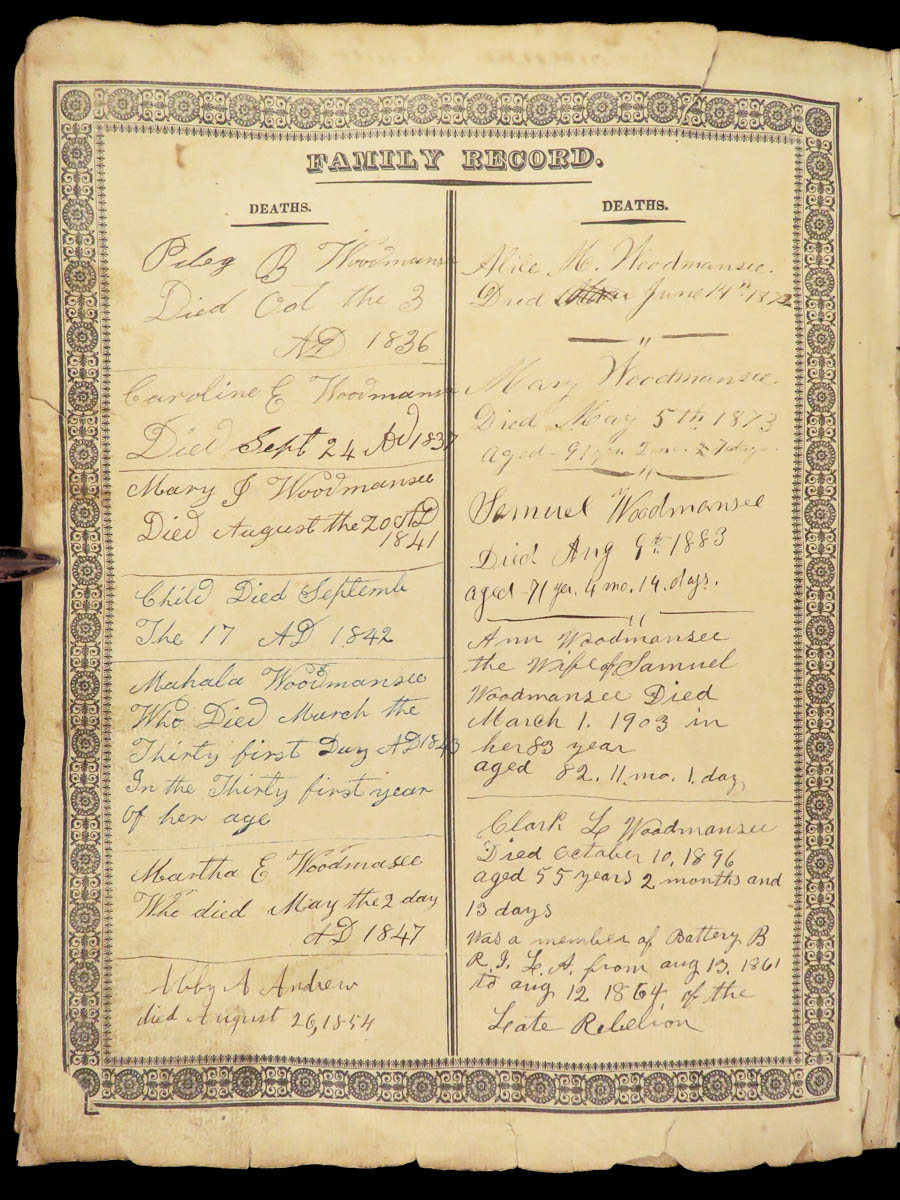 FAMILY RECORD.
DEATHS.
Peleg B Woodmansee
Died Oct the 3
AD 1836
Caroline E Woodmansee
Died Sept 24 AD 1837
Mary J Woodmansee
Died August the 20 AD
1841
Child Died Septemb
The 17 AD 1842
Mahala Woodmansee
Who Died March the
Thirty first Day AD 1843
In the Thirty first year
Of her age
Martha E Woodmasee
Who died May the 2 day
AD 1847
Abby A Andrew
died August 26, 1854
DEATHS.
Alice M. Woodmansee.
Died June 14th 1872
Mary Woodmansee.
Died May 5th 1873
aged - 91 yrs. 2 mo. & 7 days.
Samuel Woodmansee
Died Aug 9th 1883
aged - 71 yr. 4 mo. 14. days.
Ann Woodmansee
the Wife of Samuel
Woodmansee Died
March 1. 1903 in
her 83 year
aged 82. 11. mo. 1. day
Clark L Woodmansee
Died October 10, 1896
aged 55 years 2 months and
13 days
was a member of Battery B
R. I. L. A. from aug 13, 1861
to aug 12 1864, of the
Late Rebelion